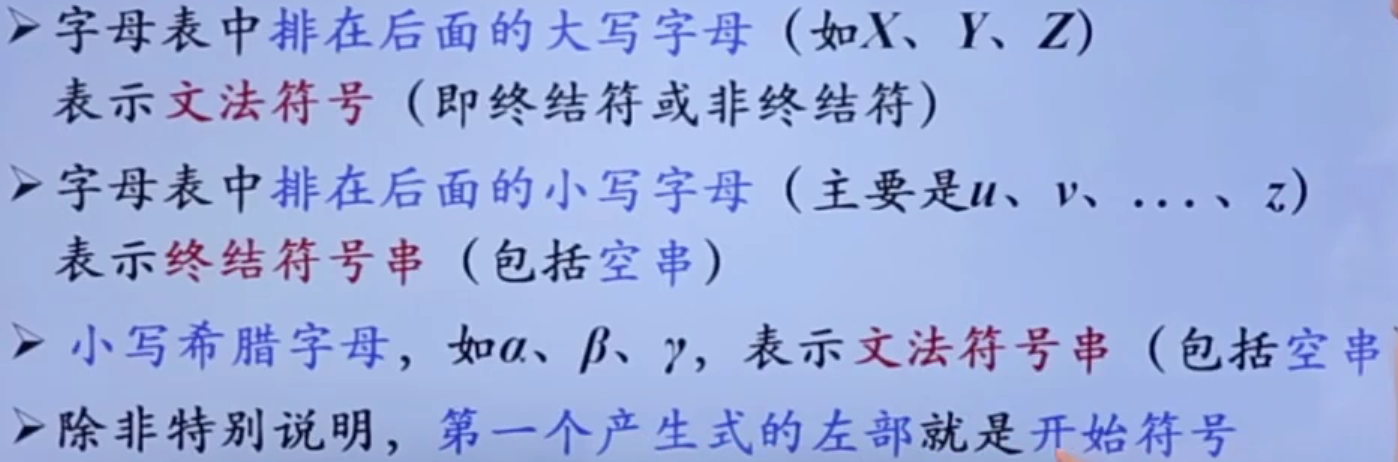 ➢字母表中排在后面的大写字母（如X、Y、Z）
表示文法符号（即终结符或非终结符）
➢字母表中排在后面的小写字母（主要是u、v、...、z）
表示终结符号串（包括空串）
➢小写希腊字母，如α、β、γ，表示文法符号串（包括空串
➢除非特别说明，第一个产生式的左部就是开始符号